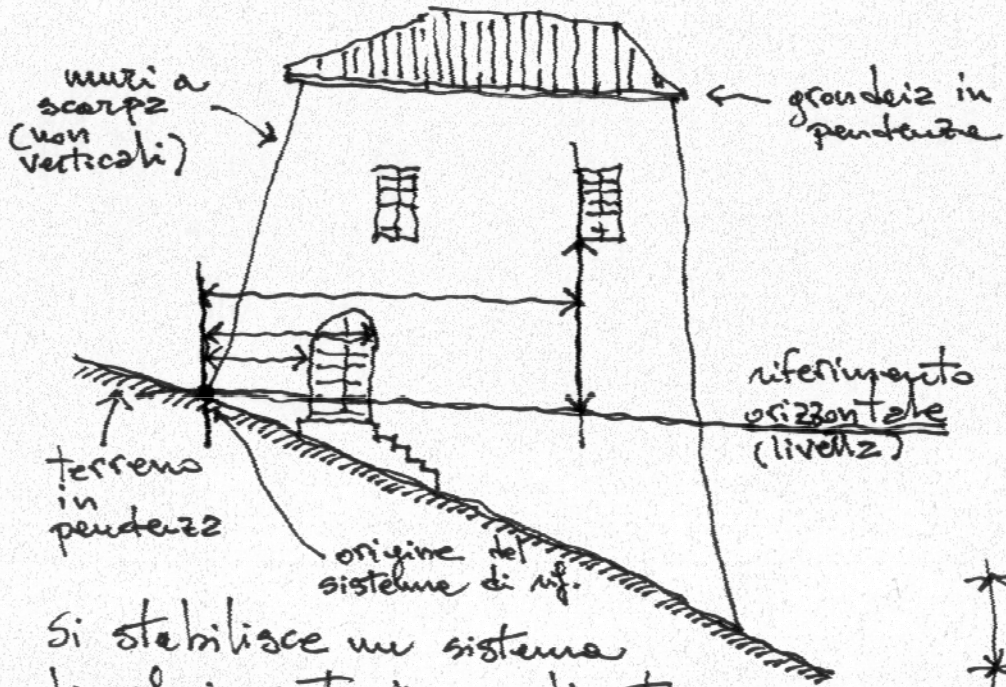 muri a
scarpa
(non
verticali)
grondaia in
pendenza
riferimento
orizzontale
(livella)
terreno
in
pendenza
origine del
sistema di rif.
Si stabilisce un sistema